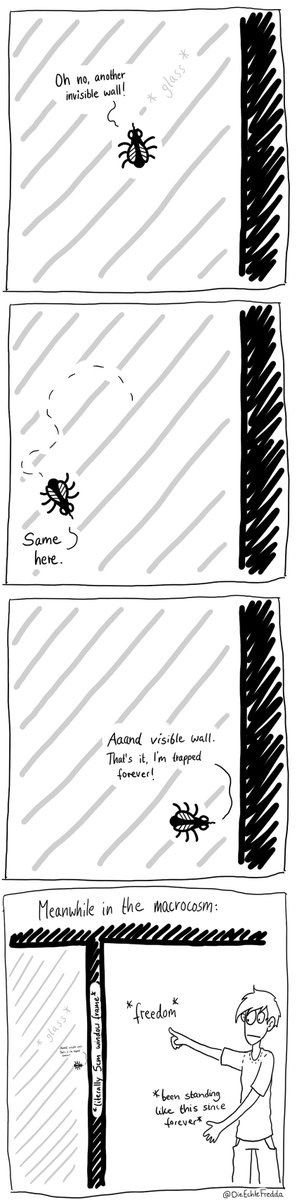 Oh no, another
invisible wall!
*glass*
Same
here.
Aaand visible wall.
That's it, I'm trapped
forever!
Meanwhile in the macrocosm:
*glass*
Aaand visible wall.
That's it, I'm trapped
forever!
*literally 5cm window frame*
*freedom*
*been standing
like this since
forever*
@DieEchteFredda